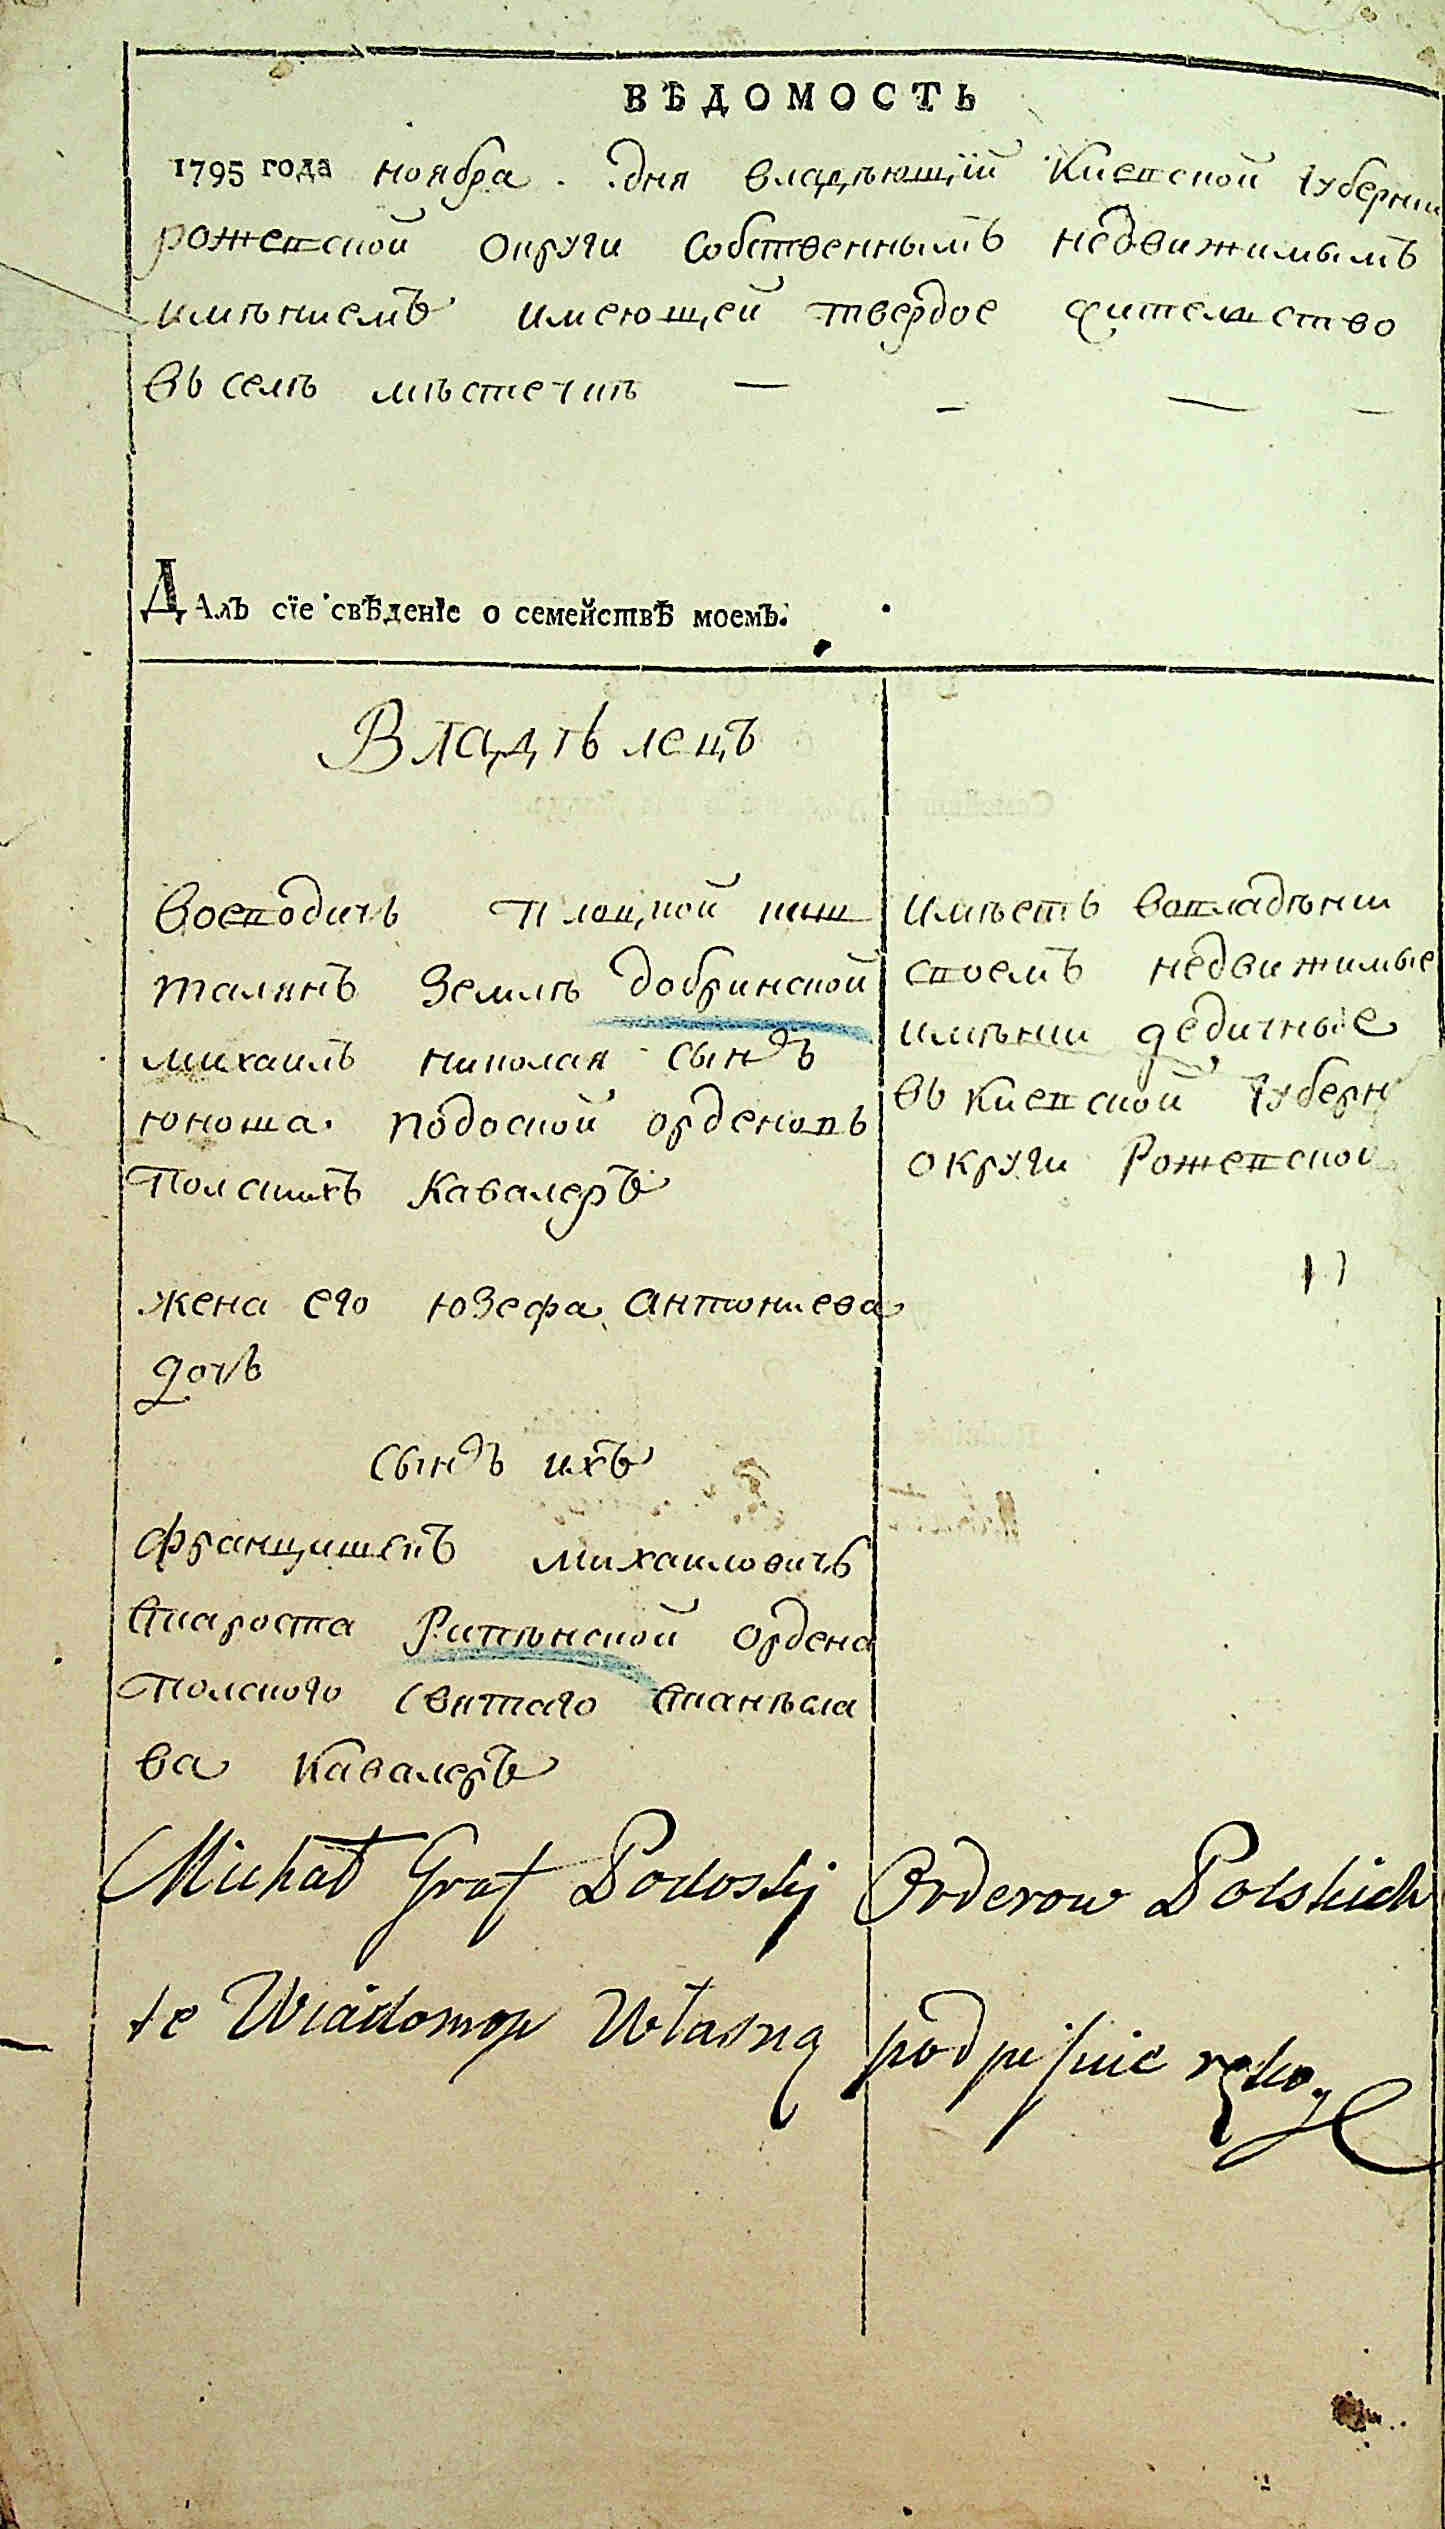 ВѢДОМОСТЬ
1795 года ноября дня владѣющій Киевской Губернии
рожевской округи собственнымъ недвижимымъ
имѣниемъ имеющей твердое жителство
въ семъ мѣстечкѣ — — — —
Далъ сїе свѣденїе о семействѣ моемъ.
Владѣлецъ
воеводичь плоцкой каш
талянъ земли добринской
михаилъ николая сынъ
юноша подоской орденовъ
полскихъ кавалеръ
жена его юзефа антониева
дочь
сынъ ихъ
францишекъ михаиловичь
староста Рипинской ордена
полского святаго станѣсла
ва кавалеръ
имѣетъ вовладѣнии
своемъ недвижимые
имѣнии дедичные
въ Киевской Губерн
округи Рожевской
Michał Graf Podoskj Orderow Polskich
te Wiadomość Własną podpisuie ręką